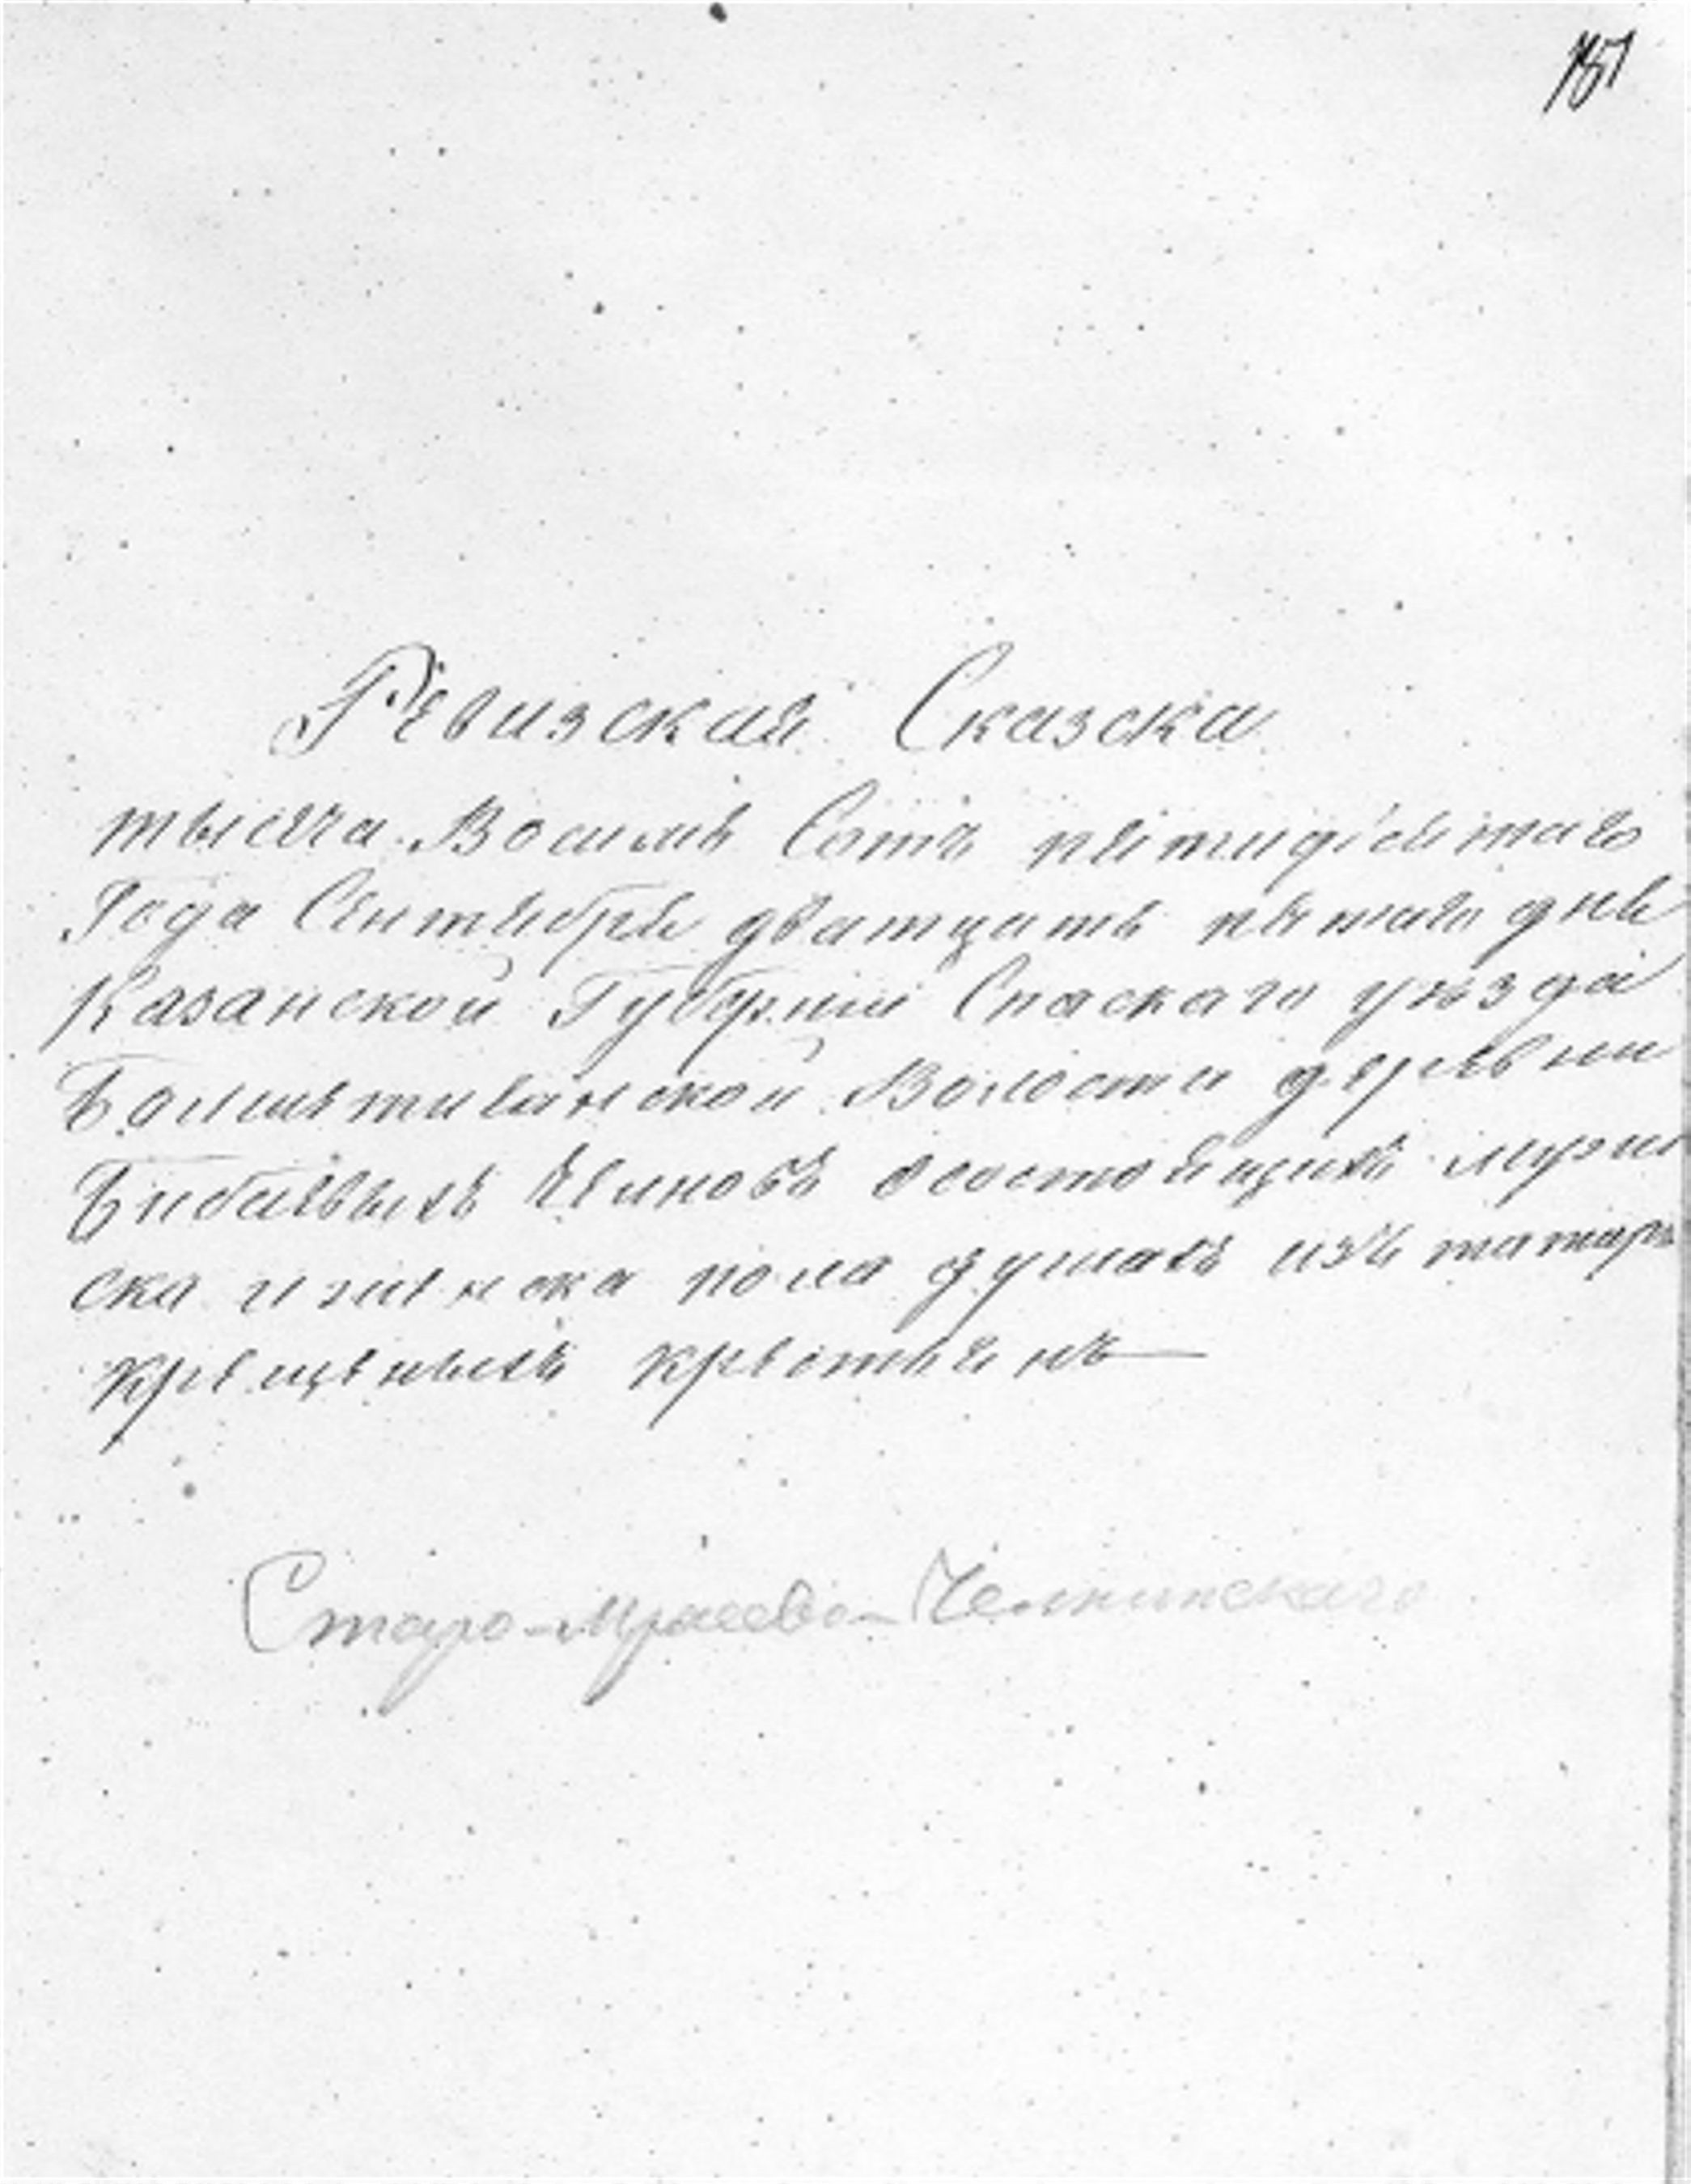 151
Ревизская Сказска
тысяча Восимь Сотъ пятидесятаго
Года Сентября дватцать пятаго дня
Казанской Губернии Спаскаго уѣзда
Волости деревни
Бибаевыхъ Челновъ осостоящихъ мужи
ска и женска пола душахъ изъ татаръ
крещеныхъ крестьянъ
Старо-Мраево-Челнинскаго